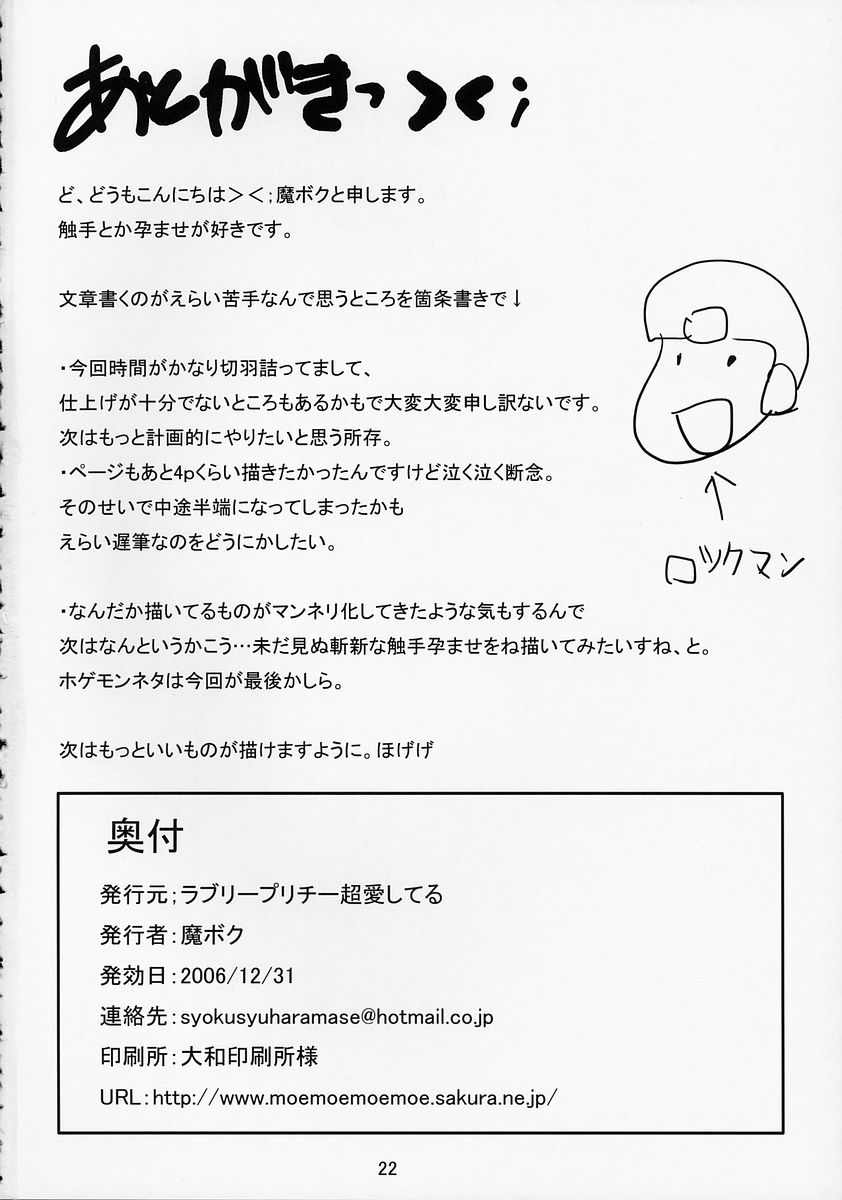 あとがきっ＞＜；
ど、どうもこんにちは＞＜；魔ボクと申します。
触手とか孕ませが好きです。
文章書くのがえらい苦手なんで思うところを箇条書きで↓
・今回時間がかなり切羽詰ってまして、
仕上げが十分でないところもあるかもで大変大変申し訳ないです。
次はもっと計画的にやりたいと思う所存。
・ページもあと4pくらい描きたかったんですけど泣く泣く断念。
そのせいで中途半端になってしまったかも
えらい遅筆なのをどうにかしたい。
・なんだか描いてるものがマンネリ化してきたような気もするんで
次はなんというかこう…未だ見ぬ斬新な触手孕ませをね描いてみたいすね、と。
ホゲモンネタは今回が最後かしら。
次はもっといいものが描けますように。ほげげ
ロックマン
奥付
発行元；ラブリープリチー超愛してる
発行者：魔ボク
発効日：2006/12/31
連絡先：syokusyuharamase@hotmail.co.jp
印刷所：大和印刷所様
URL：http://www.moemoemoemoe.sakura.ne.jp/
22